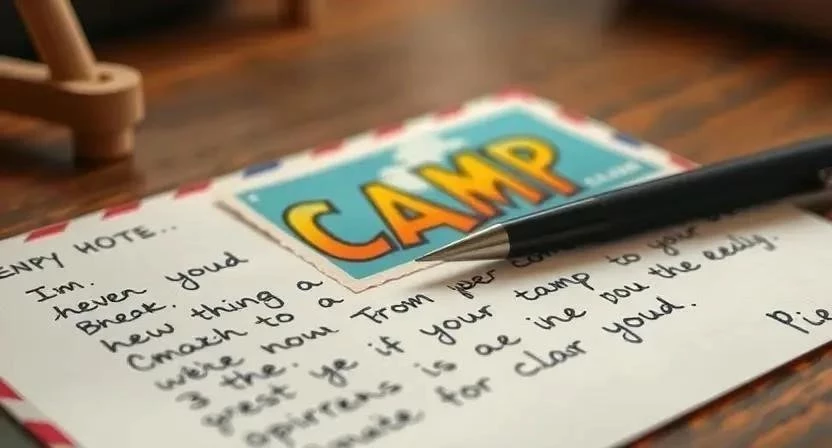 CAMP
ENPY HOTE..
Im.
heven youd
Bneak.
hew thing a
Cmazh to a
were now From
3 the.
grest ye if your tamp to your
opirrens is ae ine Dou the eedly.
for clar youd.
Pie